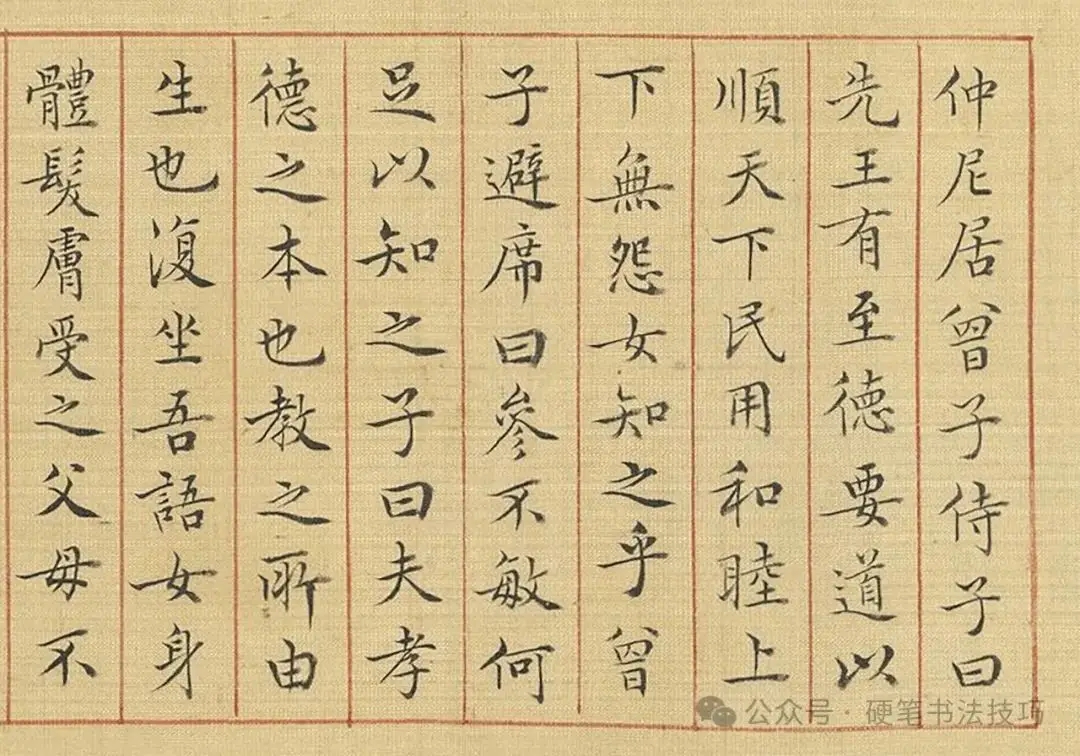 仲尼居曾子侍子曰
先王有至德要道以
順天下民用和睦上
下無怨女知之乎曾
子避席曰參不敏何
足以知之子曰夫孝
德之本也教之所由
生也復坐吾語女身
體髮膚受之父母不
公众号·硬笔书法技巧